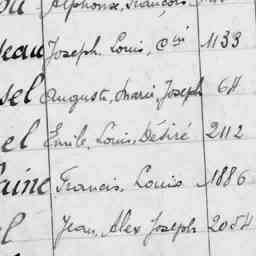 Alphonse, François
eau Joseph, Louis, 1133
sel Auguste, Marie, Joseph 64
el Emile, Louis, Désiré 2112
aine Francis, Louis 1886
l Jean, Alex Joseph 2054